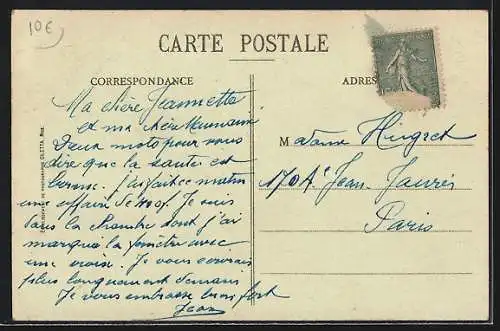 10€
CARTE POSTALE
CORRESPONDANCE
ADRES
Ma chère Jeannette
et ma chère Maman
Deux mots pour vous
dire que la santé est
bonne. J'ai fait ce matin
une affaire de Je suis
dans la chambre dont j'ai
marqué la fenêtre avec
une croix. Je vous écrirai
plus longuement demain
Je vous embrasse bien fort
Jean
Madame Hugret
170 Aˢ Jean Jaurès
Paris